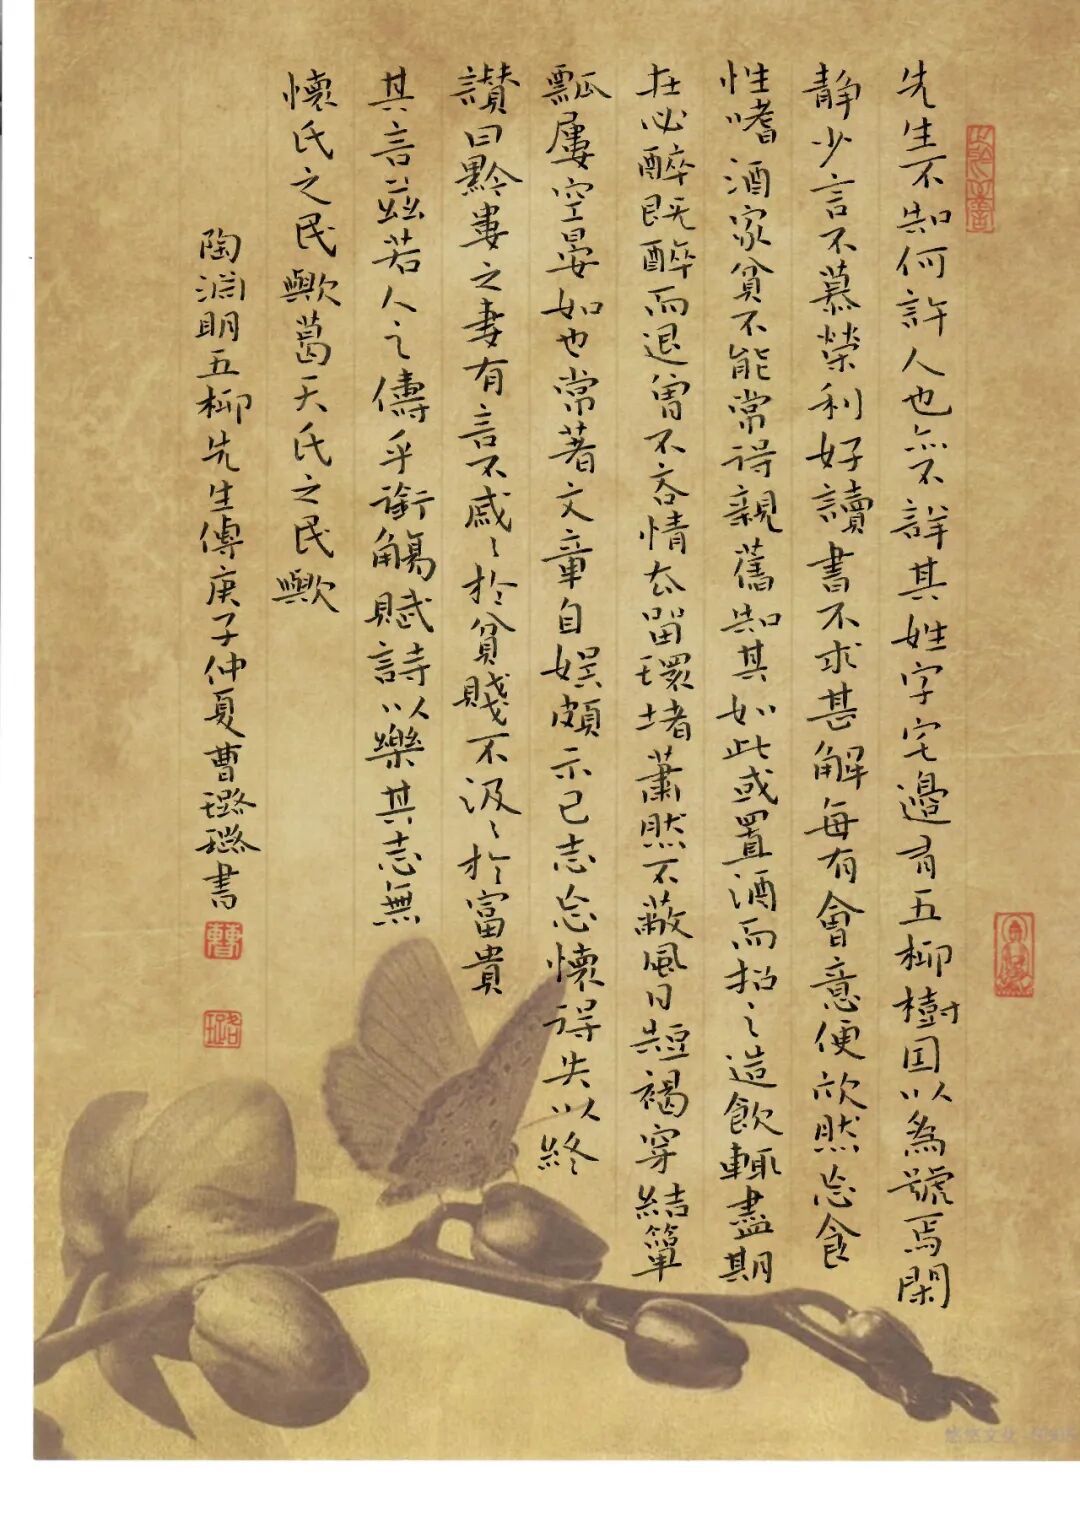 先生不知何許人也亦不詳其姓字宅邊有五柳樹因以為號焉閑
静少言不慕榮利好讀書不求甚解每有會意便欣然忘食
性嗜酒家貧不能常得親舊知其如此或置酒而招之造飲輒盡期
在必醉既醉而退曾不吝情去留環堵蕭然不蔽風日短褐穿結簞
瓢屢空晏如也常著文章自娛頗示己志忘懷得失以終
讃曰黔婁之妻有言不戚〻於貧賤不汲〻於富貴
其言兹若人之儔乎銜觴賦詩以樂其志無
懷氏之民歟葛天氏之民歟
陶淵明五柳先生傳庚子仲夏曹璐璐書
曹
璐